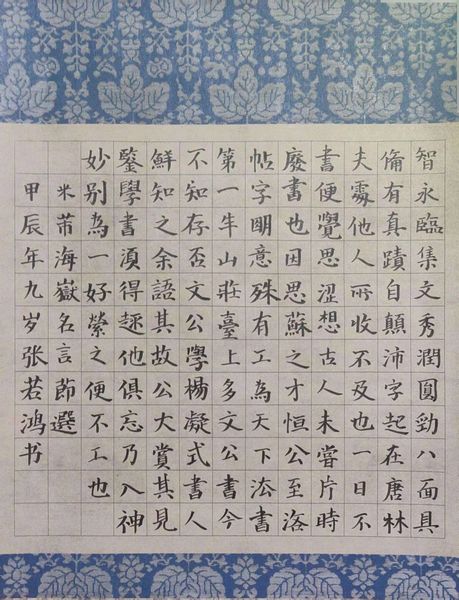 智永臨集文秀潤圓勁八面具
俻有真蹟自顛沛字起在唐林
夫處他人所收不及也一日不
書便覺思澀想古人未嘗片時
廢書也因思蘇之才恒公至洛
帖字明意殊有工為天下法書
第一牛山莊臺上多文公書今
不知存否文公學楊凝式書人
鮮知之余語其故公大賞其見
鑒學書須得趣他俱忘乃入神
妙别為一好縈之便不工也
米芾海嶽名言節選
甲辰年九岁张若鸿书